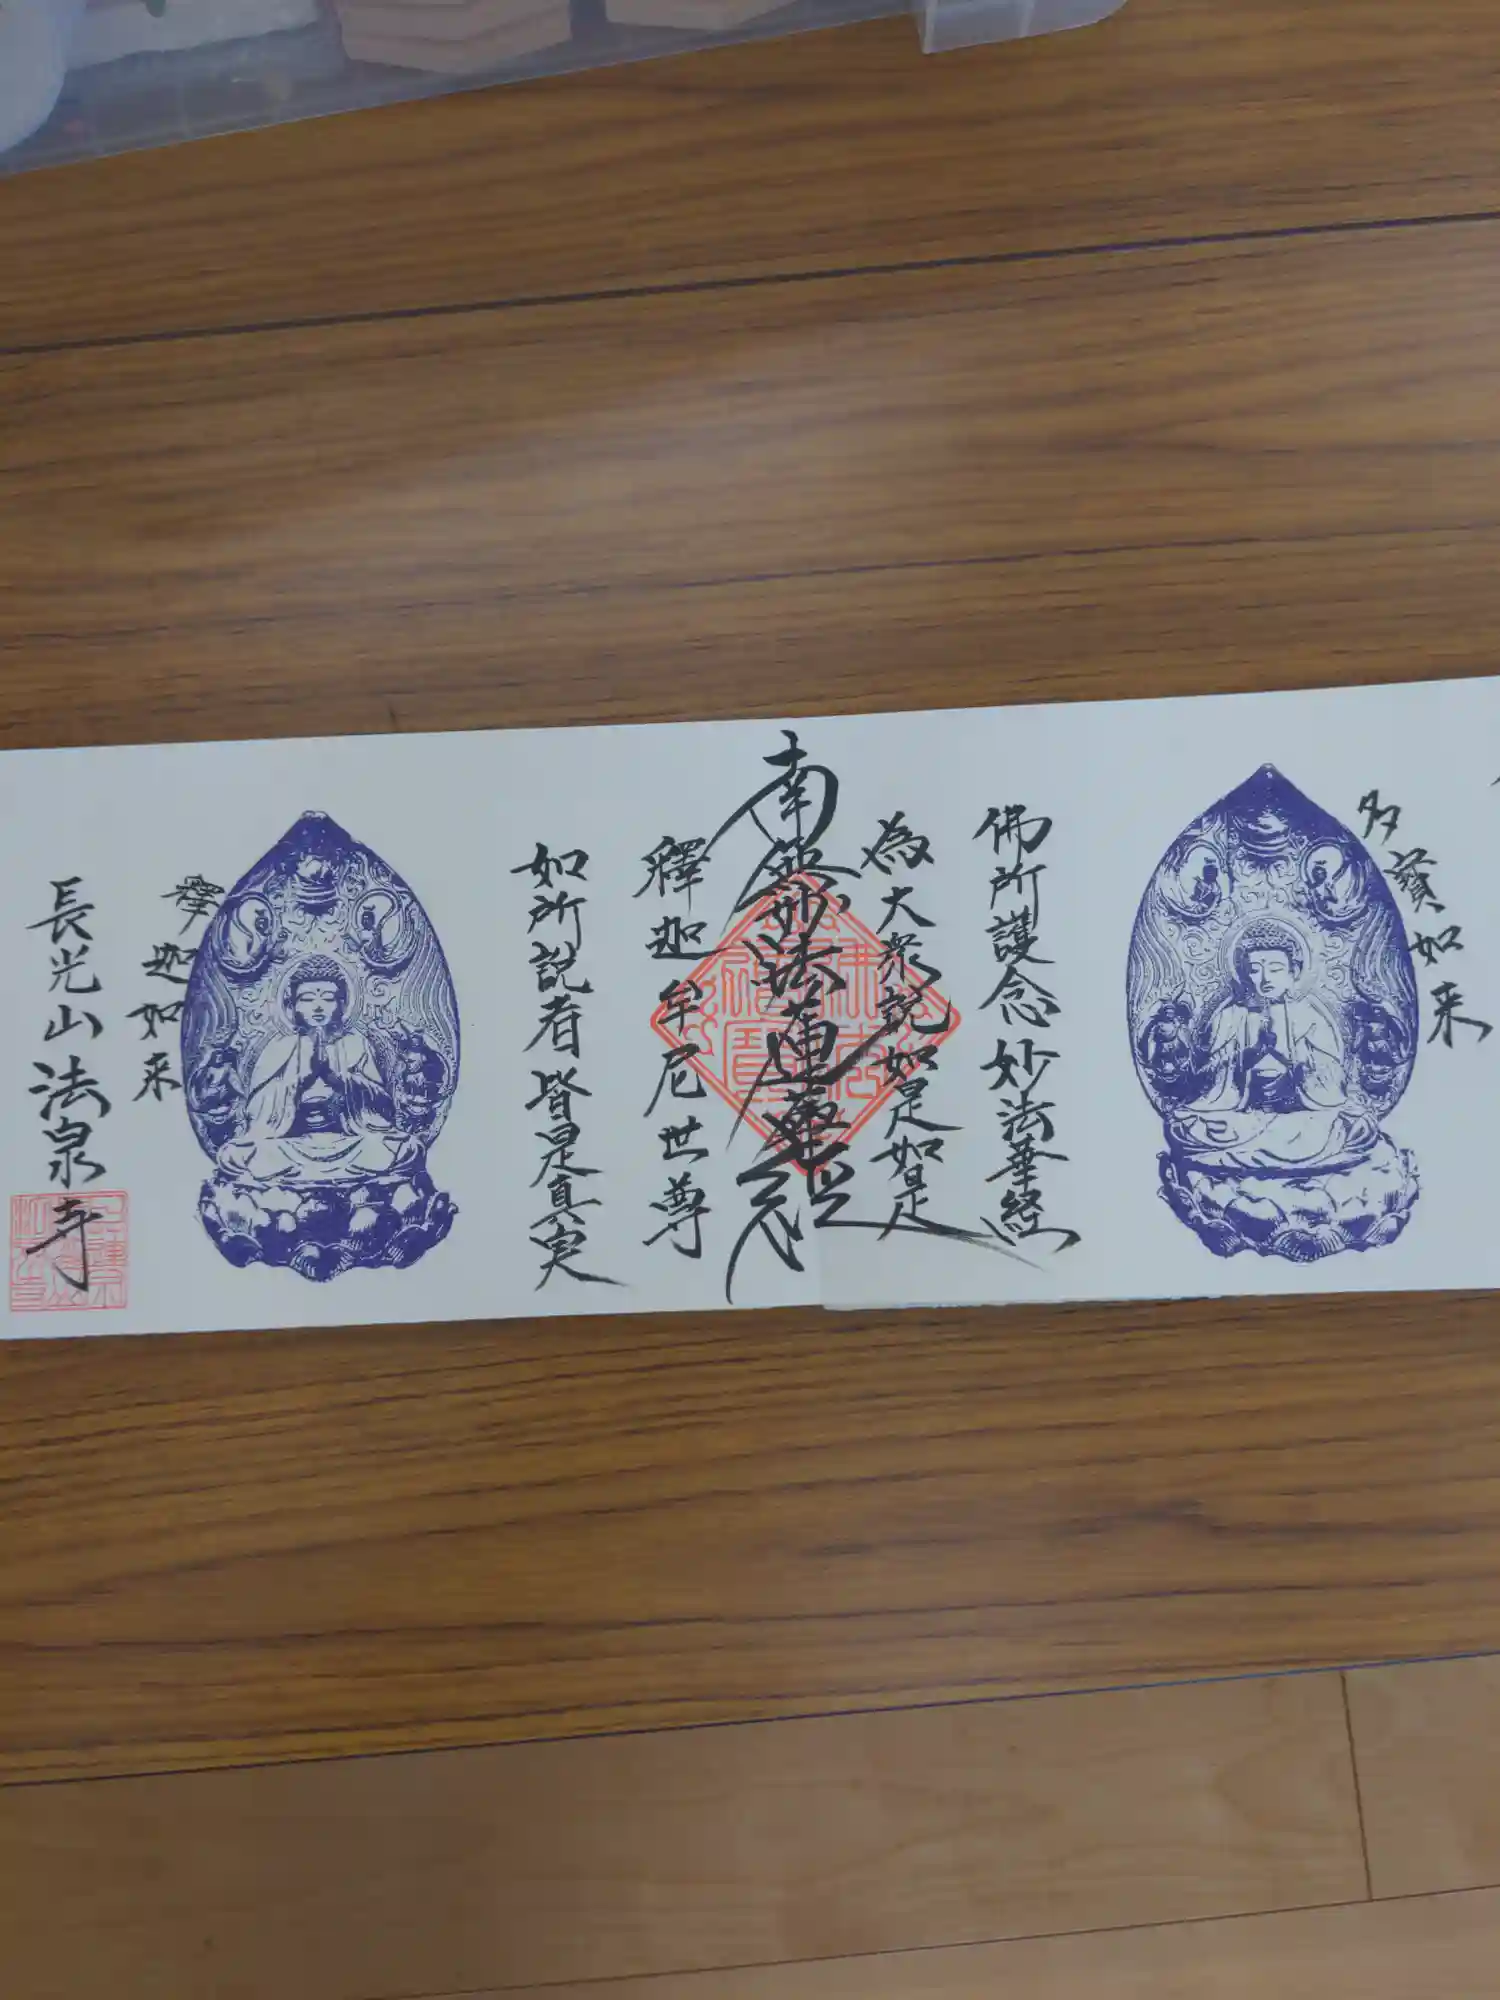 多寳如来
佛所護念妙法華経
為大衆説如是如是
南無妙法蓮華経
釋迦牟尼世尊
如所説者皆是真実
釋迦如来
長光山法泉寺